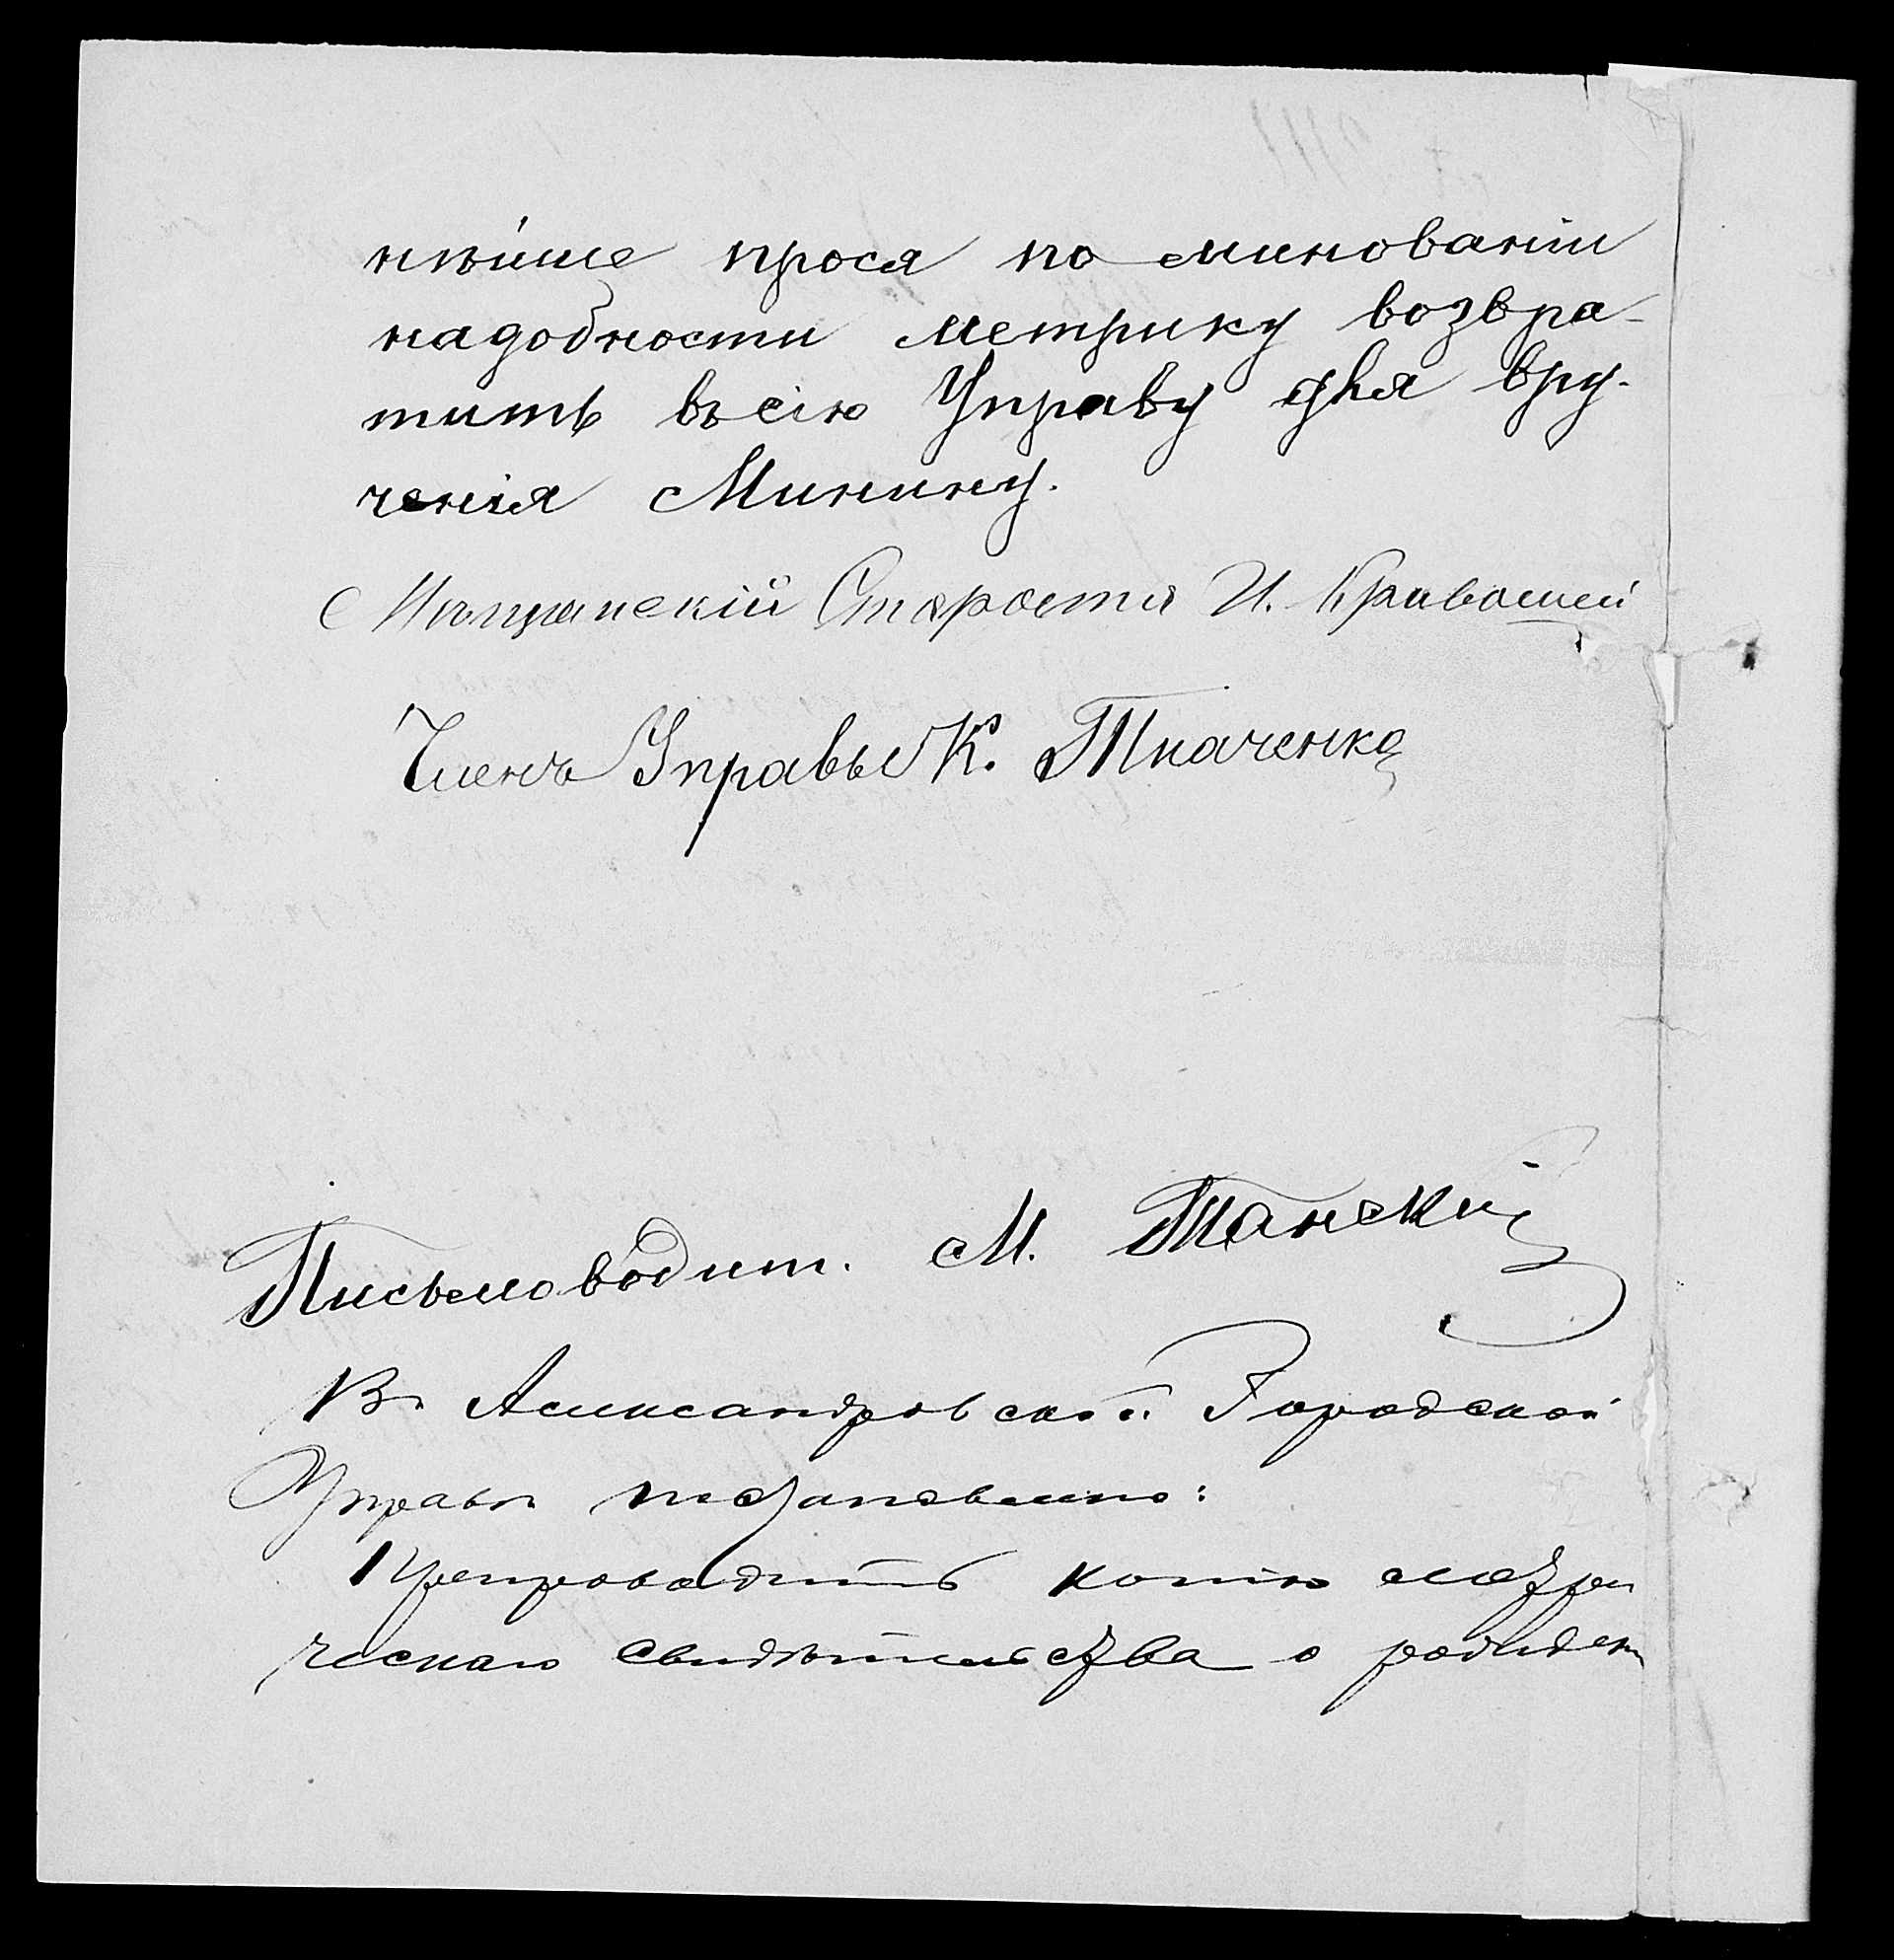 нѣйше прося по минованіи
надобности метрику возвра-
тить въ сію Управу для вру-
ченія Минину.
Мѣщанскій Староста И. Кривошей
Членъ Управы К. Ткаченко
Письмоводит. М. Танскій
Въ Александровской Городской
Управѣ постановлено:
Препроводить копію метри
ческаго свидѣтельства о рожден